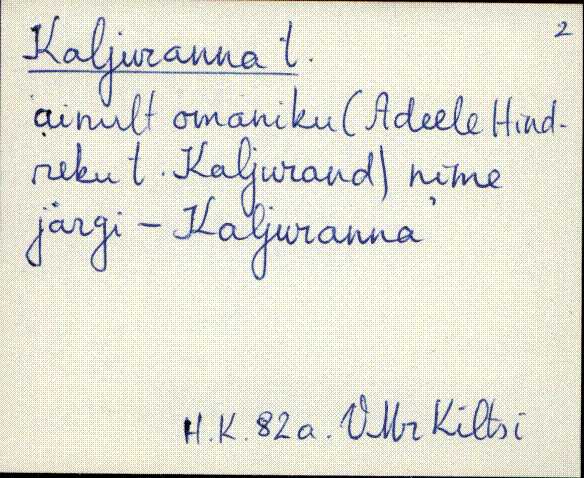 2
Kaljuranna t.
ainult omaniku (Adeele Hind-
reku t. Kaljurand) nime
järgi – Kaljuranna'
H.K. 82a. VMr Kiltsi